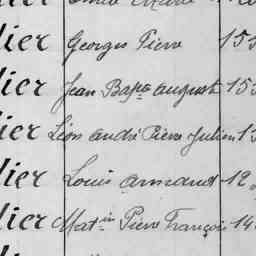 lier Georges Pierre 15
lier Jean Bapte august 15
lier Léon André Pierre Julien 1
lier Louis Armand 12
lier Matin Pierre François 14